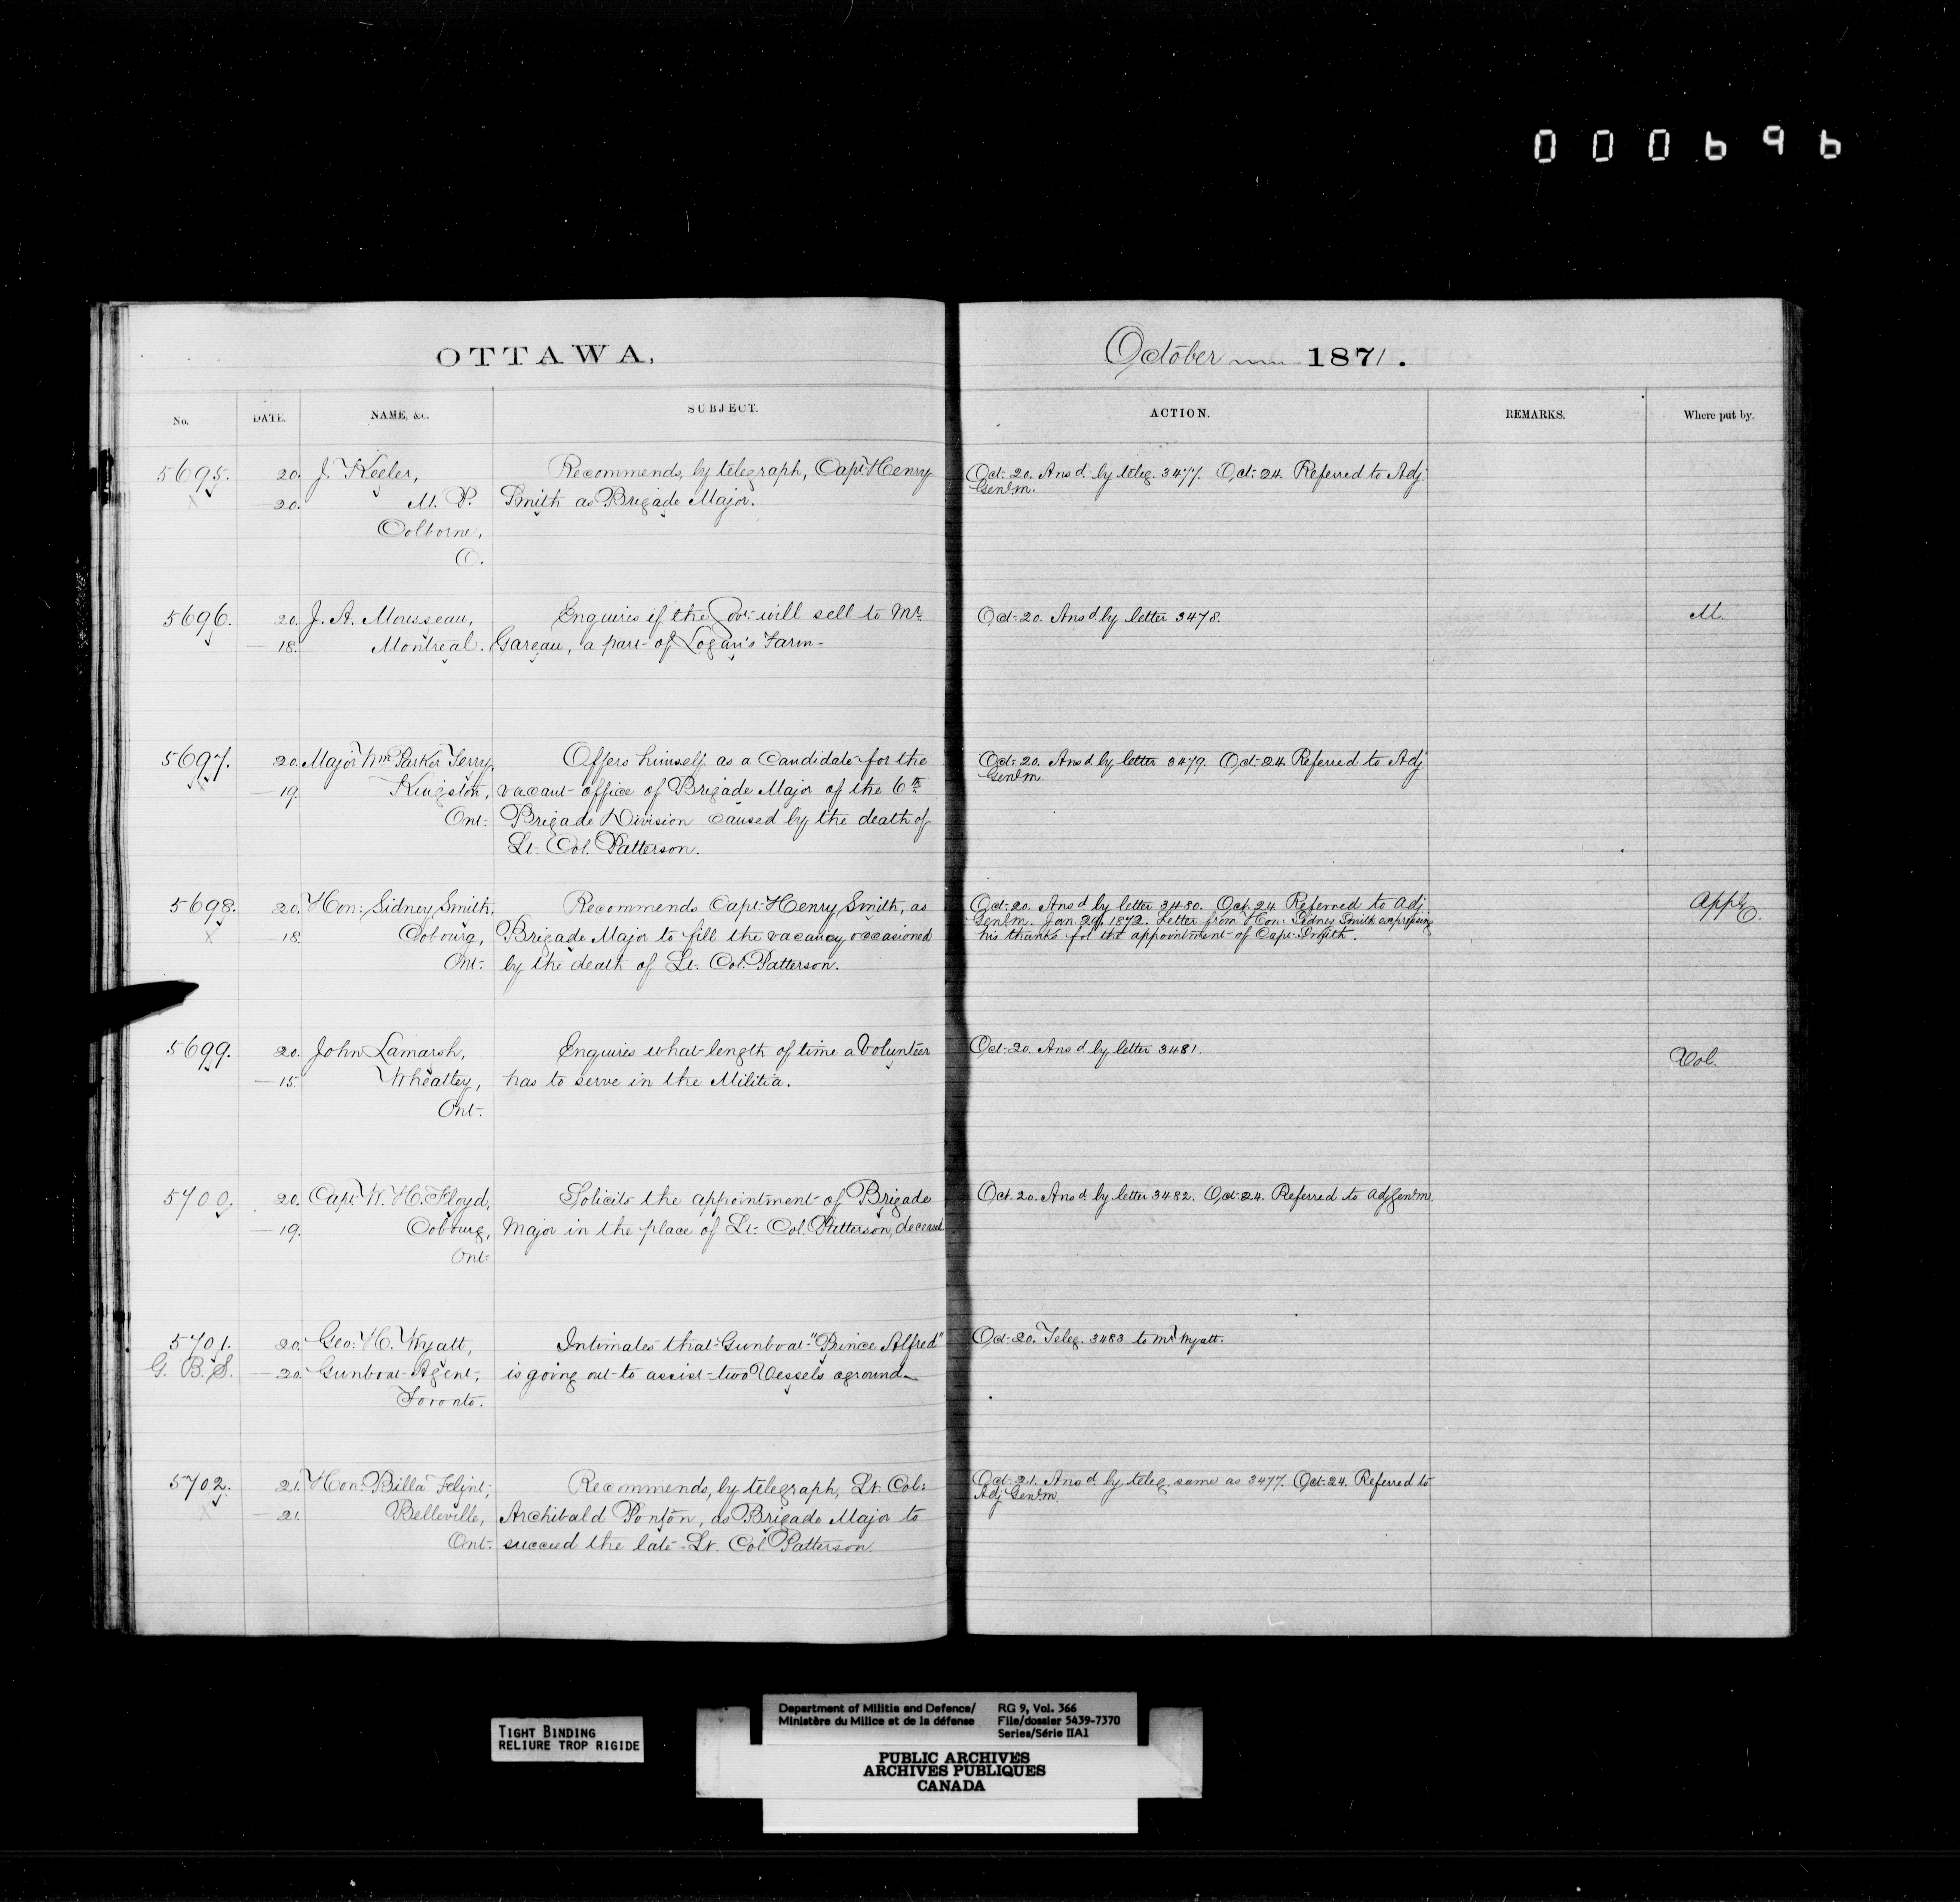 000696
OTTAWA,
October 1871.
No. DATE. NAME, &c. SUBJECT. ACTION. REMARKS. Where put by.
5695. 20. J. Keeler, Recommends, by telegraph, Capt. Henry
X 20. M. P. Smith as Brigade Major.
Colborne,
O.
Oct. 20. Ansd. by teleg. 3477. Oct. 24. Referred to Adj.
Genl. m.
5696. 20. J. A. Mousseau, Enquires if the Govt. will sell to Mr.
— 18. Montreal. Gareau, a part of Logan's Farm.
Oct. 20. Ansd. by letter 3478. M.
5697. 20. Major Wm. Parker Terry, Offers himself as a Candidate for the
X — 19. Kingston, vacant office of Brigade Major of the 6th
Ont. Brigade Division caused by the death of
Lt. Col. Patterson.
Oct. 20. Ansd. by letter 3479. Oct. 24. Referred to Adj.
Genl. m.
5698. 20. Hon: Sidney Smith, Recommends Capt. Henry Smith, as
X — 18. Cobourg, Brigade Major to fill the vacancy occasioned
Ont. by the death of Lt. Col. Patterson.
Oct. 20. Ansd. by letter 3480. Oct. 24. Referred to Adj.
Genl. m. Jan. 29, 1872. Letter from Hon: Sidney Smith expressing
his thanks for the appointment of Capt. Smith.
5699. 20. John Lamarsh, Enquires what length of time a Volunteer
— 15. Wheatley, has to serve in the Militia.
Ont.
Oct. 20. Ansd. by letter 3481. Vol.
5700. 20. Capt. W. H. Floyd, Solicits the appointment of Brigade
— 19. Cobourg, Major in the place of Lt. Col. Patterson, deceased.
Ont.
Oct. 20. Ansd. by letter 3482. Oct. 24. Referred to Adj Genl. m.
5701. 20. Geo: H. Wyatt, Intimates that Gunboat "Prince Alfred"
G. B. S. — 20. Gunboat Agent, is going out to assist two Vessels aground.
Toronto.
Oct. 20. Teleg. 3483 to Mr. Wyatt.
5702. 21. Hon: Billa Flint, Recommends, by telegraph, Lt. Col:
X — 21. Belleville, Archibald Ponton, as Brigade Major to
Ont. succeed the late Lt. Col. Patterson.
Oct. 21. Ansd. by teleg. same as 3477. Oct. 24. Referred to
Adj Genl. m.
TIGHT BINDING
RELIURE TROP RIGIDE
Department of Militia and Defence/
Ministère du Milice et de la défense
RG 9, Vol. 366
File/dossier 5439-7370
Series/Série IIA1
PUBLIC ARCHIVES
ARCHIVES PUBLIQUES
CANADA